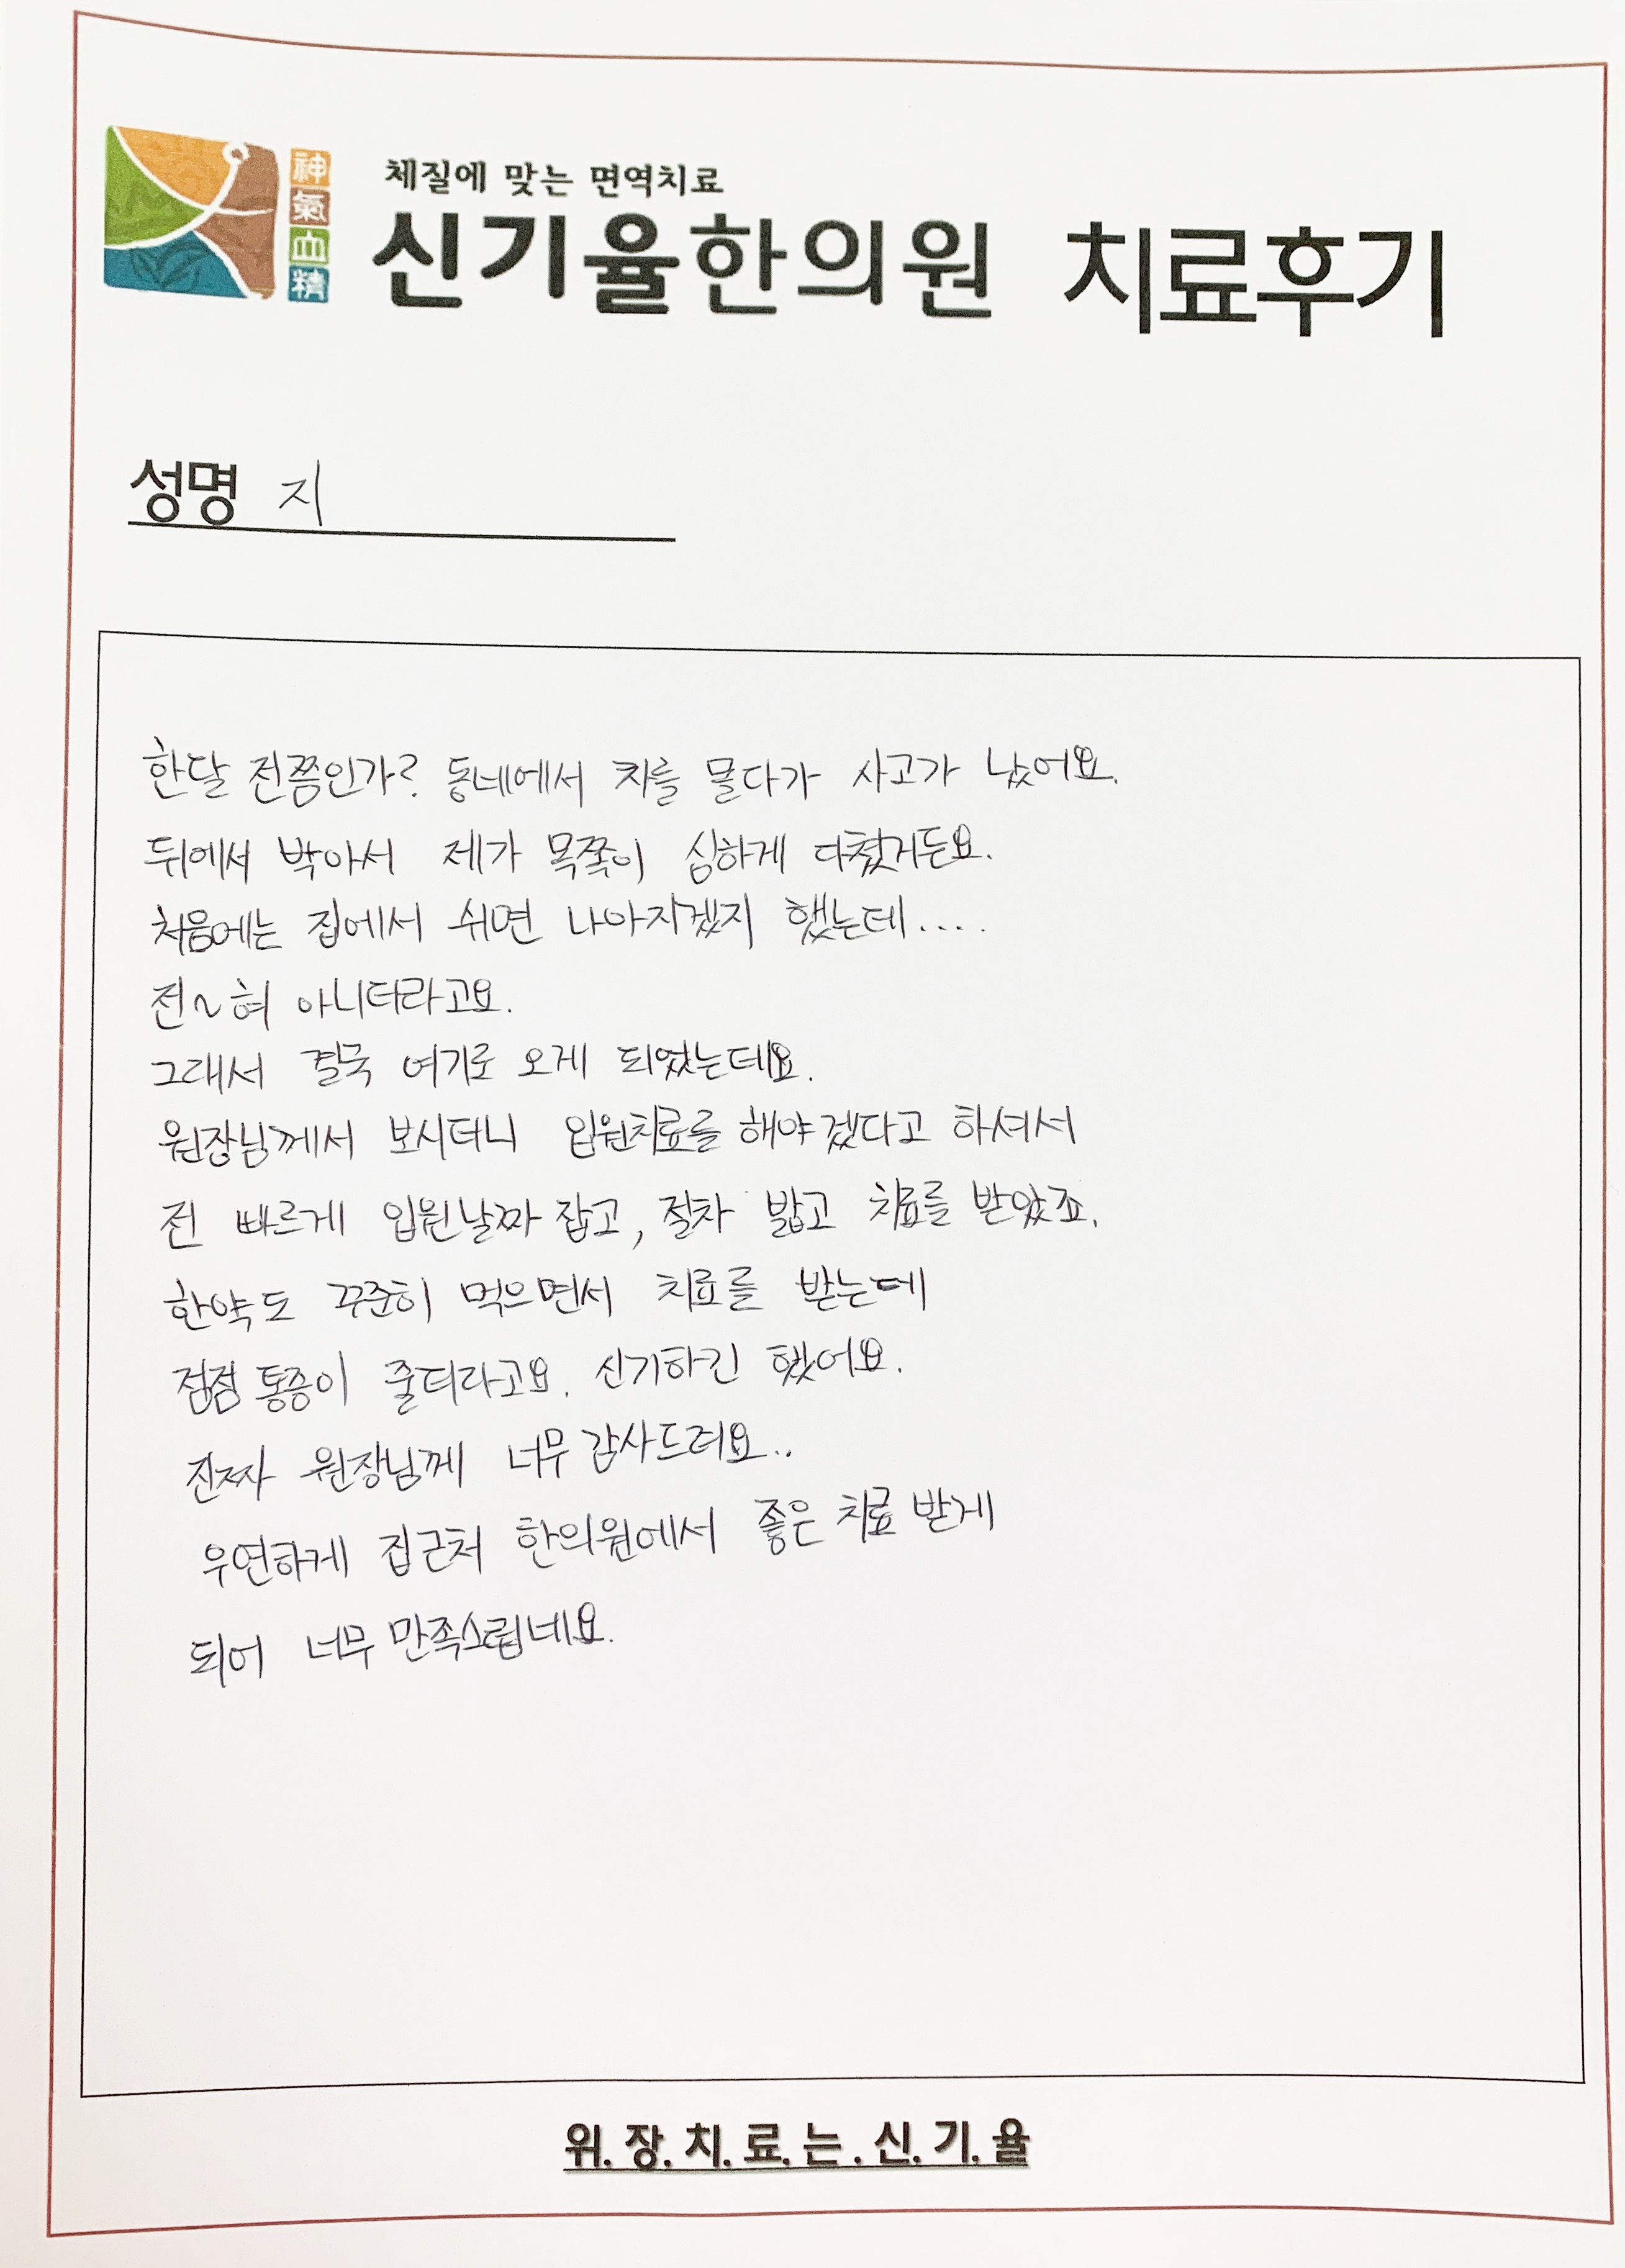 神氣血精
체질에 맞는 면역치료
신기율한의원 치료후기
성명 지
한달 전쯤인가? 동네에서 차를 몰다가 사고가 났어요.
뒤에서 박아서 제가 목쪽이 심하게 다쳤거든요.
처음에는 집에서 쉬면 나아지겠지 했는데....
전~혀 아니더라고요.
그래서 결국 여기로 오게 되었는데요.
원장님께서 보시더니 입원치료를 해야겠다고 하셔서
전 빠르게 입원날짜 잡고, 절차 밟고 치료를 받았죠.
한약도 꾸준히 먹으면서 치료를 받는데
점점 통증이 줄더라고요. 신기하긴 했어요.
진짜 원장님께 너무 감사드려요..
우연하게 집근처 한의원에서 좋은 치료 받게
되어 너무 만족스럽네요.
위.장.치.료.는.신.기.율